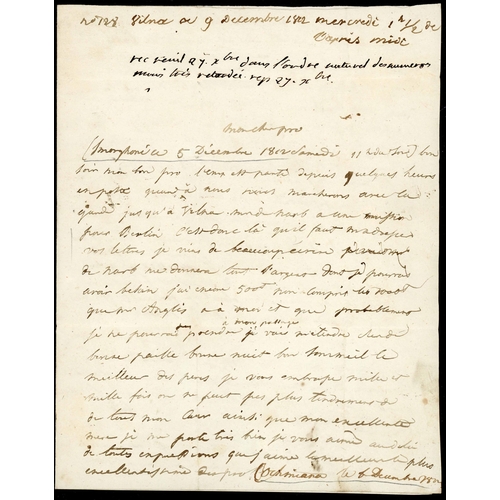 no 128 Vilna ce 9 Decembre 1812 mercredi 1h 1/2 de
l'après midi
rec reuil 27. xbre dans l'ordre naturel des numeros
mais très retardée rep 27. xbre.
mon cher pro
Smorghoné ce 5 Décembre 1812 Samedi 11h du soir bon
soir mon bon pro l'em est parti depuis quelques heures
en poste quand à nous nous marcherons avec la
garde jusqu'à Vilna narb a une mission
pour Berlin c'est donc là qu'il faut m'adresser
vos lettres je viens de beaucoup écrire
de narb me donnera tout l'argent dont je pourrai
avoir besoin j'ai encore 500 non compris les
que mr Anglès a à moi et que probablement
je ne pourrai prendre à mon passage je vais m'étendre sur de
bonne paille bonne nuit bon sommeil le
meilleur des pères je vous embrasse mille et
mille fois on ne peut pas plus tendrement
de tout mon cœur ainsi que mon excellente
mère je me porte très bien je vous aime au delà
de toutes expressions que j'aime le meilleur le plus
excellentissime des pro Ochmiana ce 6 Decembre 1812